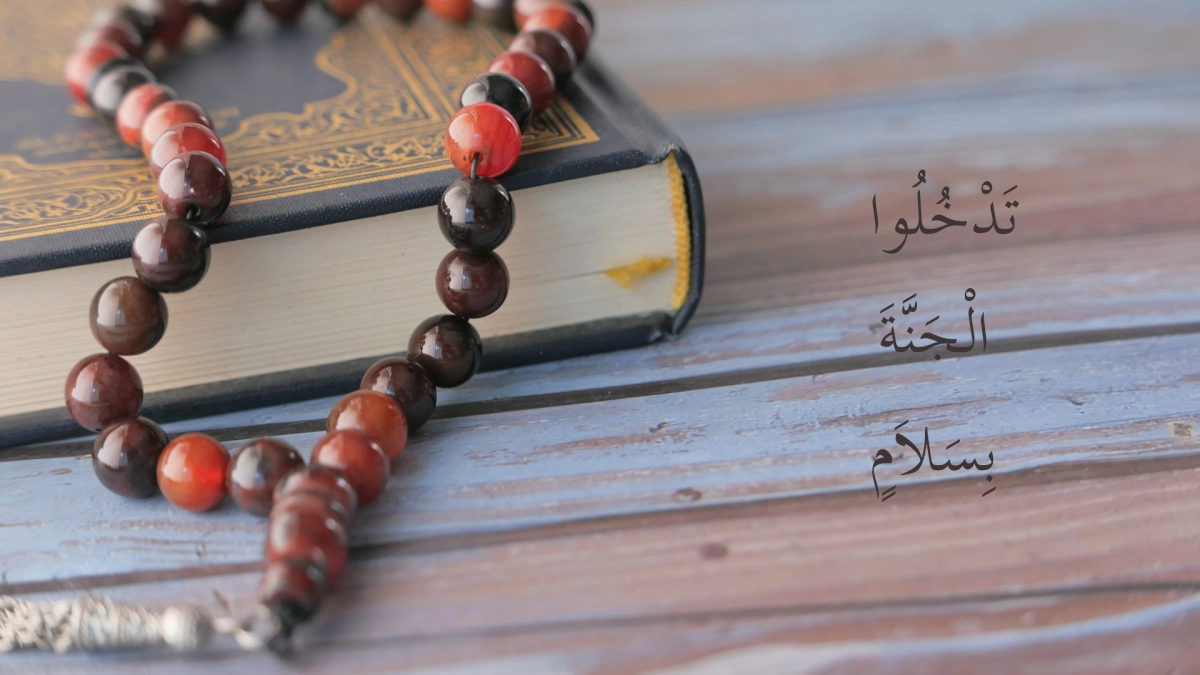 تَدْخُلُوا
الْجَنَّةَ
بِسَلاَمٍ